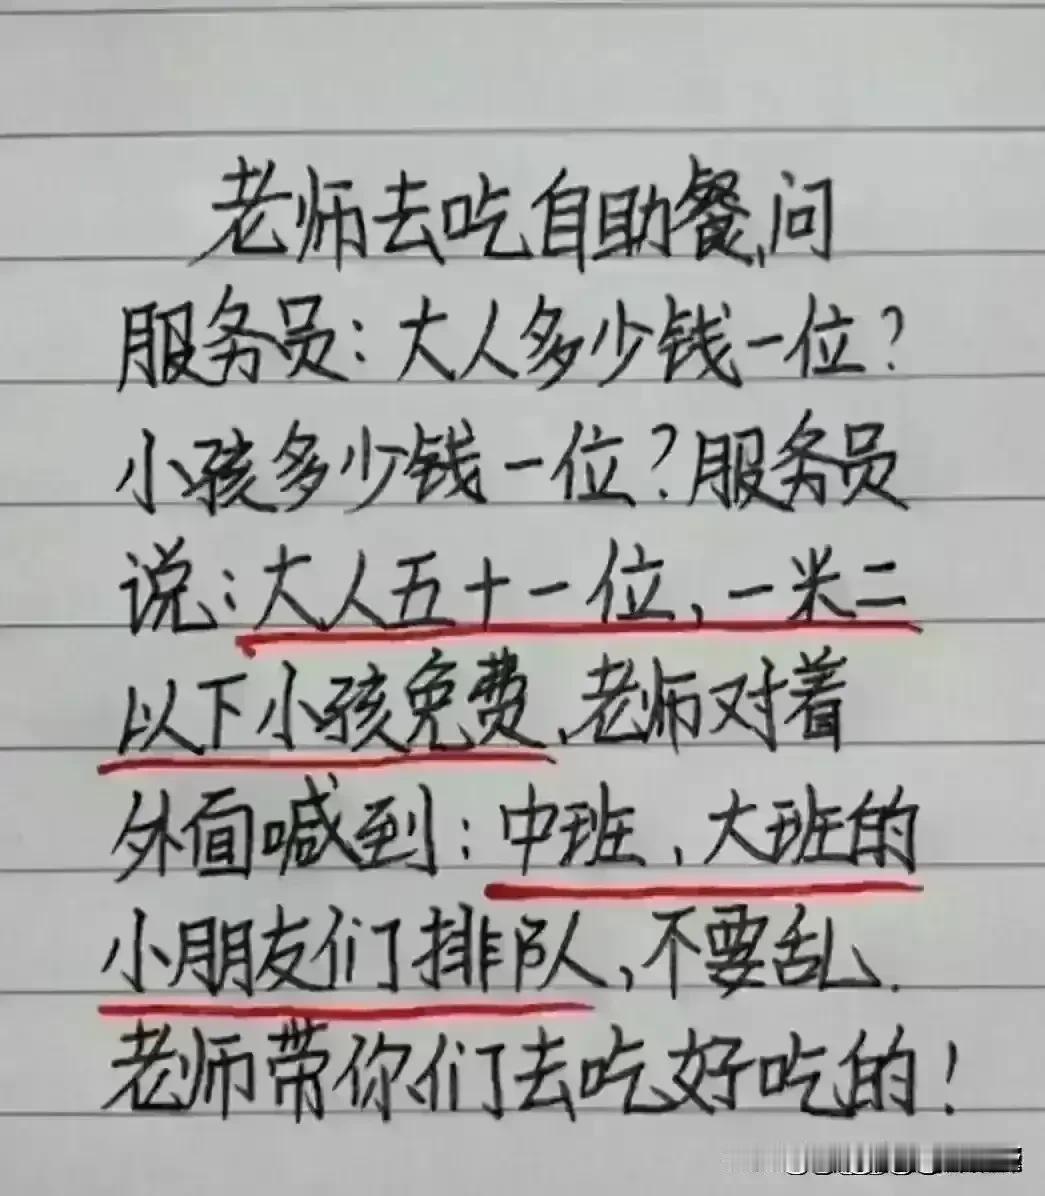 老师去吃自助餐,问
服务员:大人多少钱一位?
小孩多少钱一位?服务员
说:大人五十一位,一米二
以下小孩免费,老师对着
外面喊到:中班,大班的
小朋友们排队,不要乱.
老师带你们去吃好吃的!